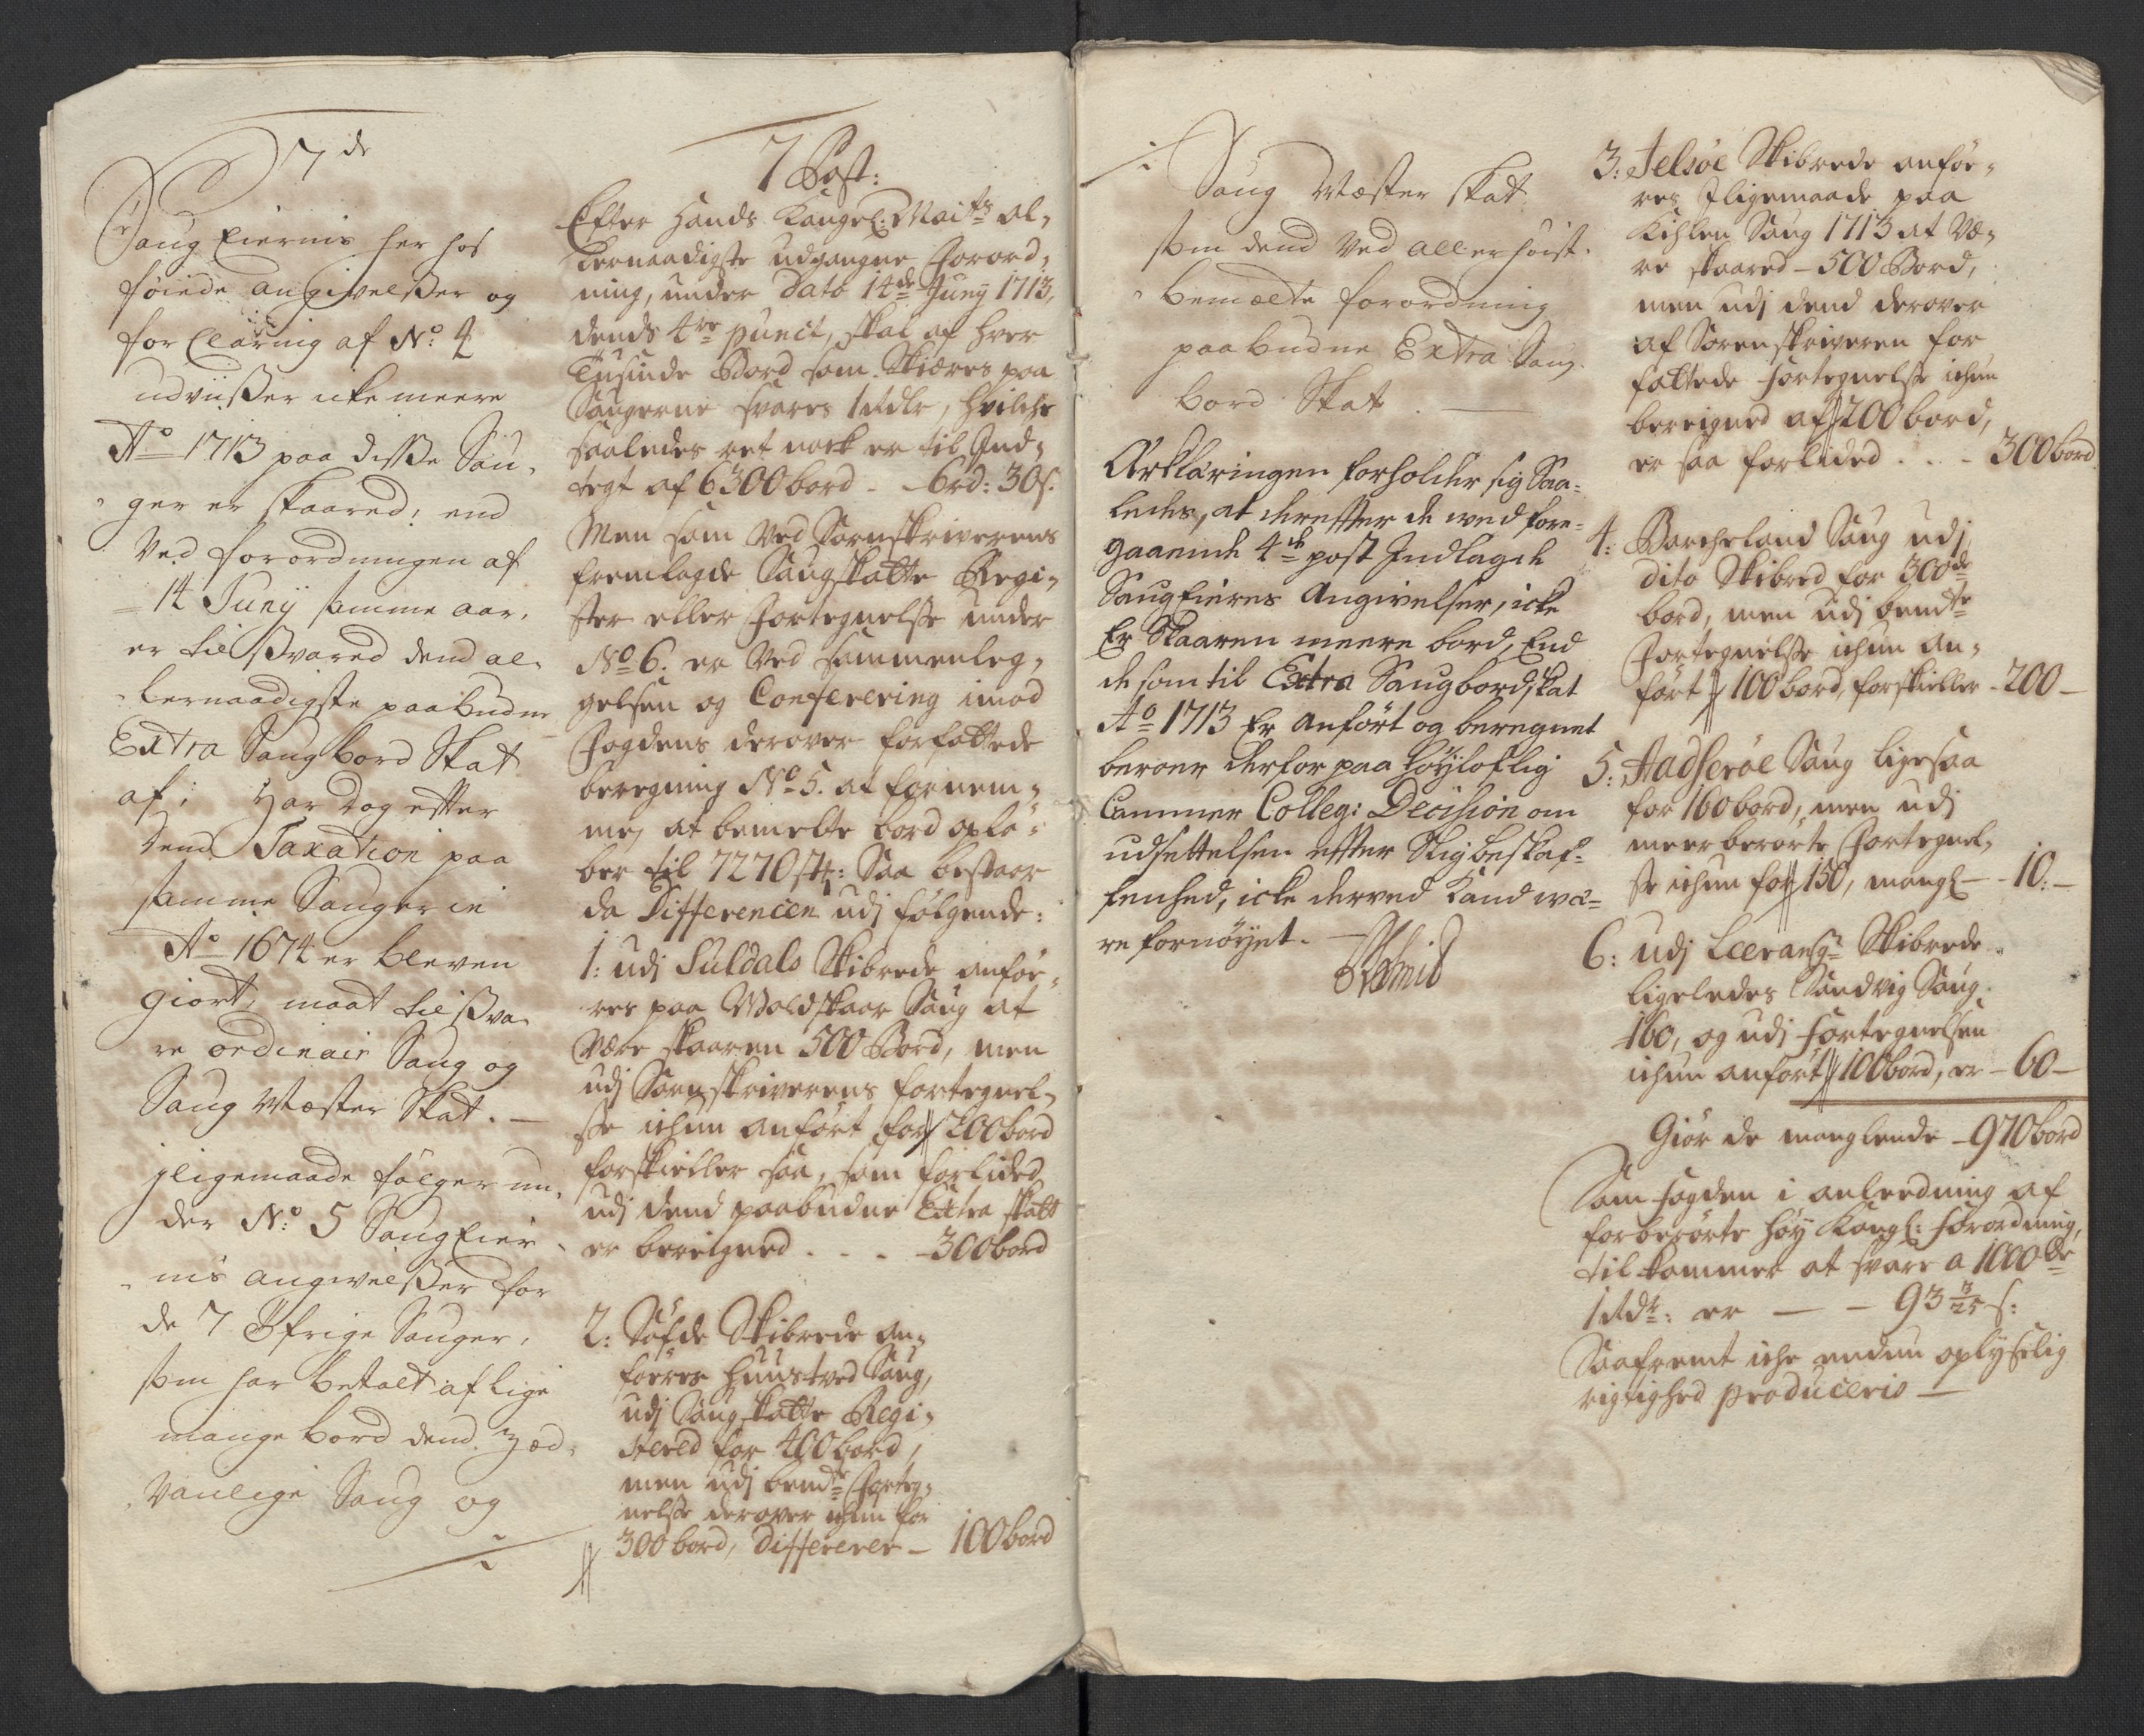 7de
Saug Eiernis her hos
føiede angivelsser og
forClaring af No: 4
udviisser icke meere
Ao 1713 paa disse Sau-
ger er skaared, end
Ved forordningen af
14 Junij samme aar,
er tilsvared dend al-
lernaadigste paabudne
Extra Saugbord Skat
af; Har dog efter
dend Taxation paa
samme Sauger in
Ao 1674 er bleven
giort, maat tilsva-
re ordinair Saug og
Saug Mæster Skat. —
jligemaade følger un-
der No: 5 SaugEier-
nis angivelsser for
de 7 Øfrige Sauger,
som har betalt af lige
mange bord dend Sæd-
vanlige Saug og

7 Post:
Efter Hands Kongel: Maits al-
lernaadigste udgangne Forord-
ning, under Dato 14de Junij 1713,
dends 4re punct, skal af hver
Tusinde Bord som Skiæres paa
Saugerne svares 1 Rdlr, hvilche
saaledes ret nock er til Ind-
tegt af 6300 bord - 6rd: 30s.
Men som ved Sornskriverens
fremlagde Saugskatte Regi-
ster eller Fortegnelsse under
No 6. er ved sammenleg-
gelsen og Conferering imod
Fogdens derover forfattede
beregning No 5. at fornem-
me, at bemelte bord oplø-
ber til 7270 st: Saa bestaar
da Differencen udj følgende:
1: udi Suldals Skibrede anfør-
res paa Woldskaar Saug at
være skaaren 500 Bord, men
udj Sornskriverens fortegnel-
sse ichun anført for 200 bord
forskieller saa, som forlided
udj dend paabudne Extra skatt
er bereigned . . . - 300 bord
2: Søfde Skibrede an-
føeres Huustved Saug,
udj Saugskatte Regi-
stered for 400 bord,
men udj bemte Forteg-
nelsse derover ichun for
300 bord, Differerer - 100 bord

Saug Mæster skat
som dend ved allerhøist-
bemælte forordning
paabudne Extra Saug-
bord Skat. —
Ærklaringen forholder sig Saa-
ledes, at derefter de wed fore-
gaaende 4de post Indlagde
SaugEieres Angivelser, icke
Er Skaaren meere bord, End
de som til Extra Saugbordskat
Ao 1713 Er anført og beregnet
beroer derfor paa Høyloflig
Cammer Colleg: Decision om
udsettelsen efter Slig beskaf-
fenhed, icke derved Kand wæ-
re fornøyet. —

3: Jelsøe Skibrede anfør-
res Jligemaade paa
Kihlen Saug 1713 at Væ-
re skaared - 500 Bord,
men udj dend derover
af Sorenskriveren for
fattede fortegnelsse ichun
bereigned af 200 bord,
er saa forlided . . . - 300 bord
4: Barcheland Saug udj
dito Skibred for 300de
bord, men udj bemte
Fortegnelsse ichun an-
ført 100 bord, forskieller - 200 —
5: Aadserøe Saug ligesaa
for 160 bord, men udj
meerberørte Fortegnel-
sse ichun for 150, mangl - 10: —
6: udj Leeranss Skibrede
ligeledes Sandvig Saug
160, og udj Fortegnelsen
ichun anført 100 bord, er - 60 —
Giør de manglende - 970 bord
Som Fogden i anleedning af
forberørte høy Kongl: Forordning,
til kommer at svare a 1000de
1 Rdr: er — — 93 3/25 s:
Saafremt iche endnu oplyselig
rigtighed produceris —